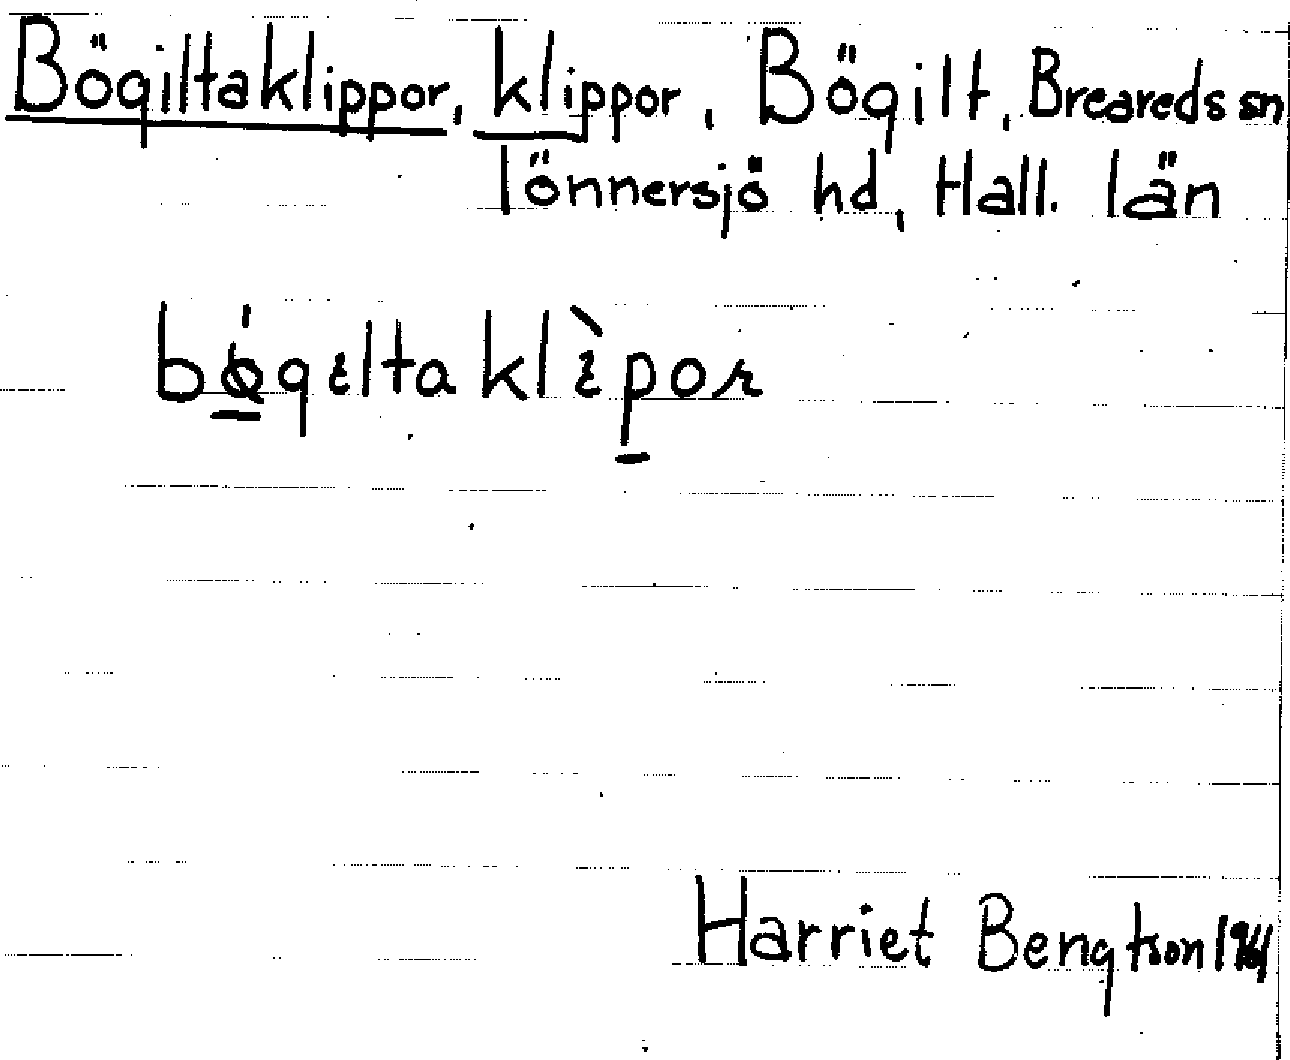 Bögiltaklippor, klippor, Bögilt, Breareds sn
Tönnersjö hd, Hall. län
bǿgıltaklìpor
Harriet Bengtson